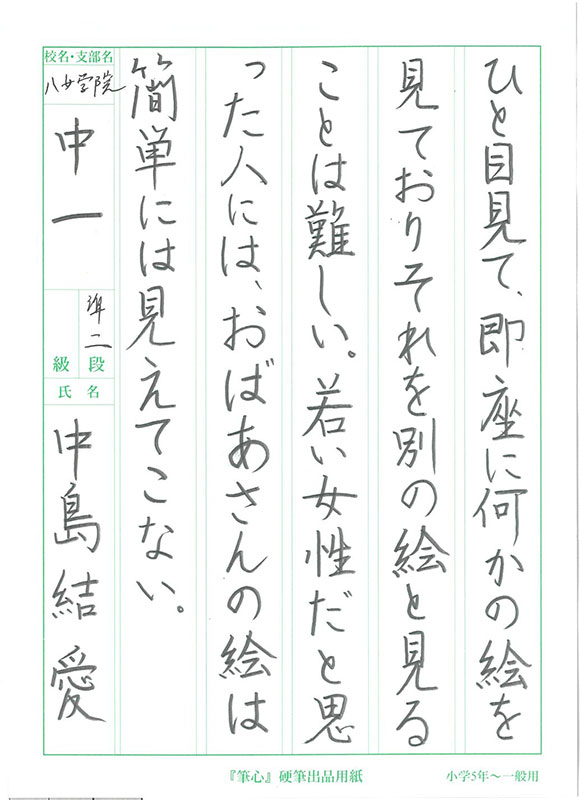 ひと目見て、即座に何かの絵を
見ておりそれを別の絵と見る
ことは難しい。若い女性だと思
った人には、おばあさんの絵は
簡単には見えてこない。
校名・支部名
八女学院
中一
準二
級 段
氏 名
中島結愛
『筆心』硬筆出品用紙
小学5年〜一般用